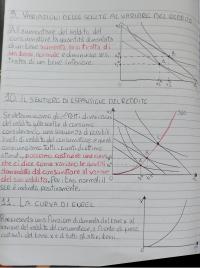 9. VARIAZIONI DELLE SCELTE AL VARIARE DEL REDDITO
All'aumentare del reddito del
consumatore la quantità domandata
di un bene aumenta se si tratta di
un bene normale e diminuisce se si
tratta di un bene inferiore.
10. IL SENTIERO DI ESPANSIONE DEL REDDITO
Se determiniamo gli effetti di variazioni
del reddito sulle scelte di consumo
considerando una sequenza di possibili
livelli di reddito del consumatore e
congiungiamo tutti i punti
possiamo costruire una curva
che ci dice come variano le quantità
domandate dal consumatore al variare
del suo reddito. Per i beni normali il
SER è inclinato positivamente.
11. LA CURVA DI ENGEL
Rappresenta una funzione di domanda del bene x al
variare del reddito del consumatore, a parità di prezzi
costanti del bene x e di tutti gli altri beni.